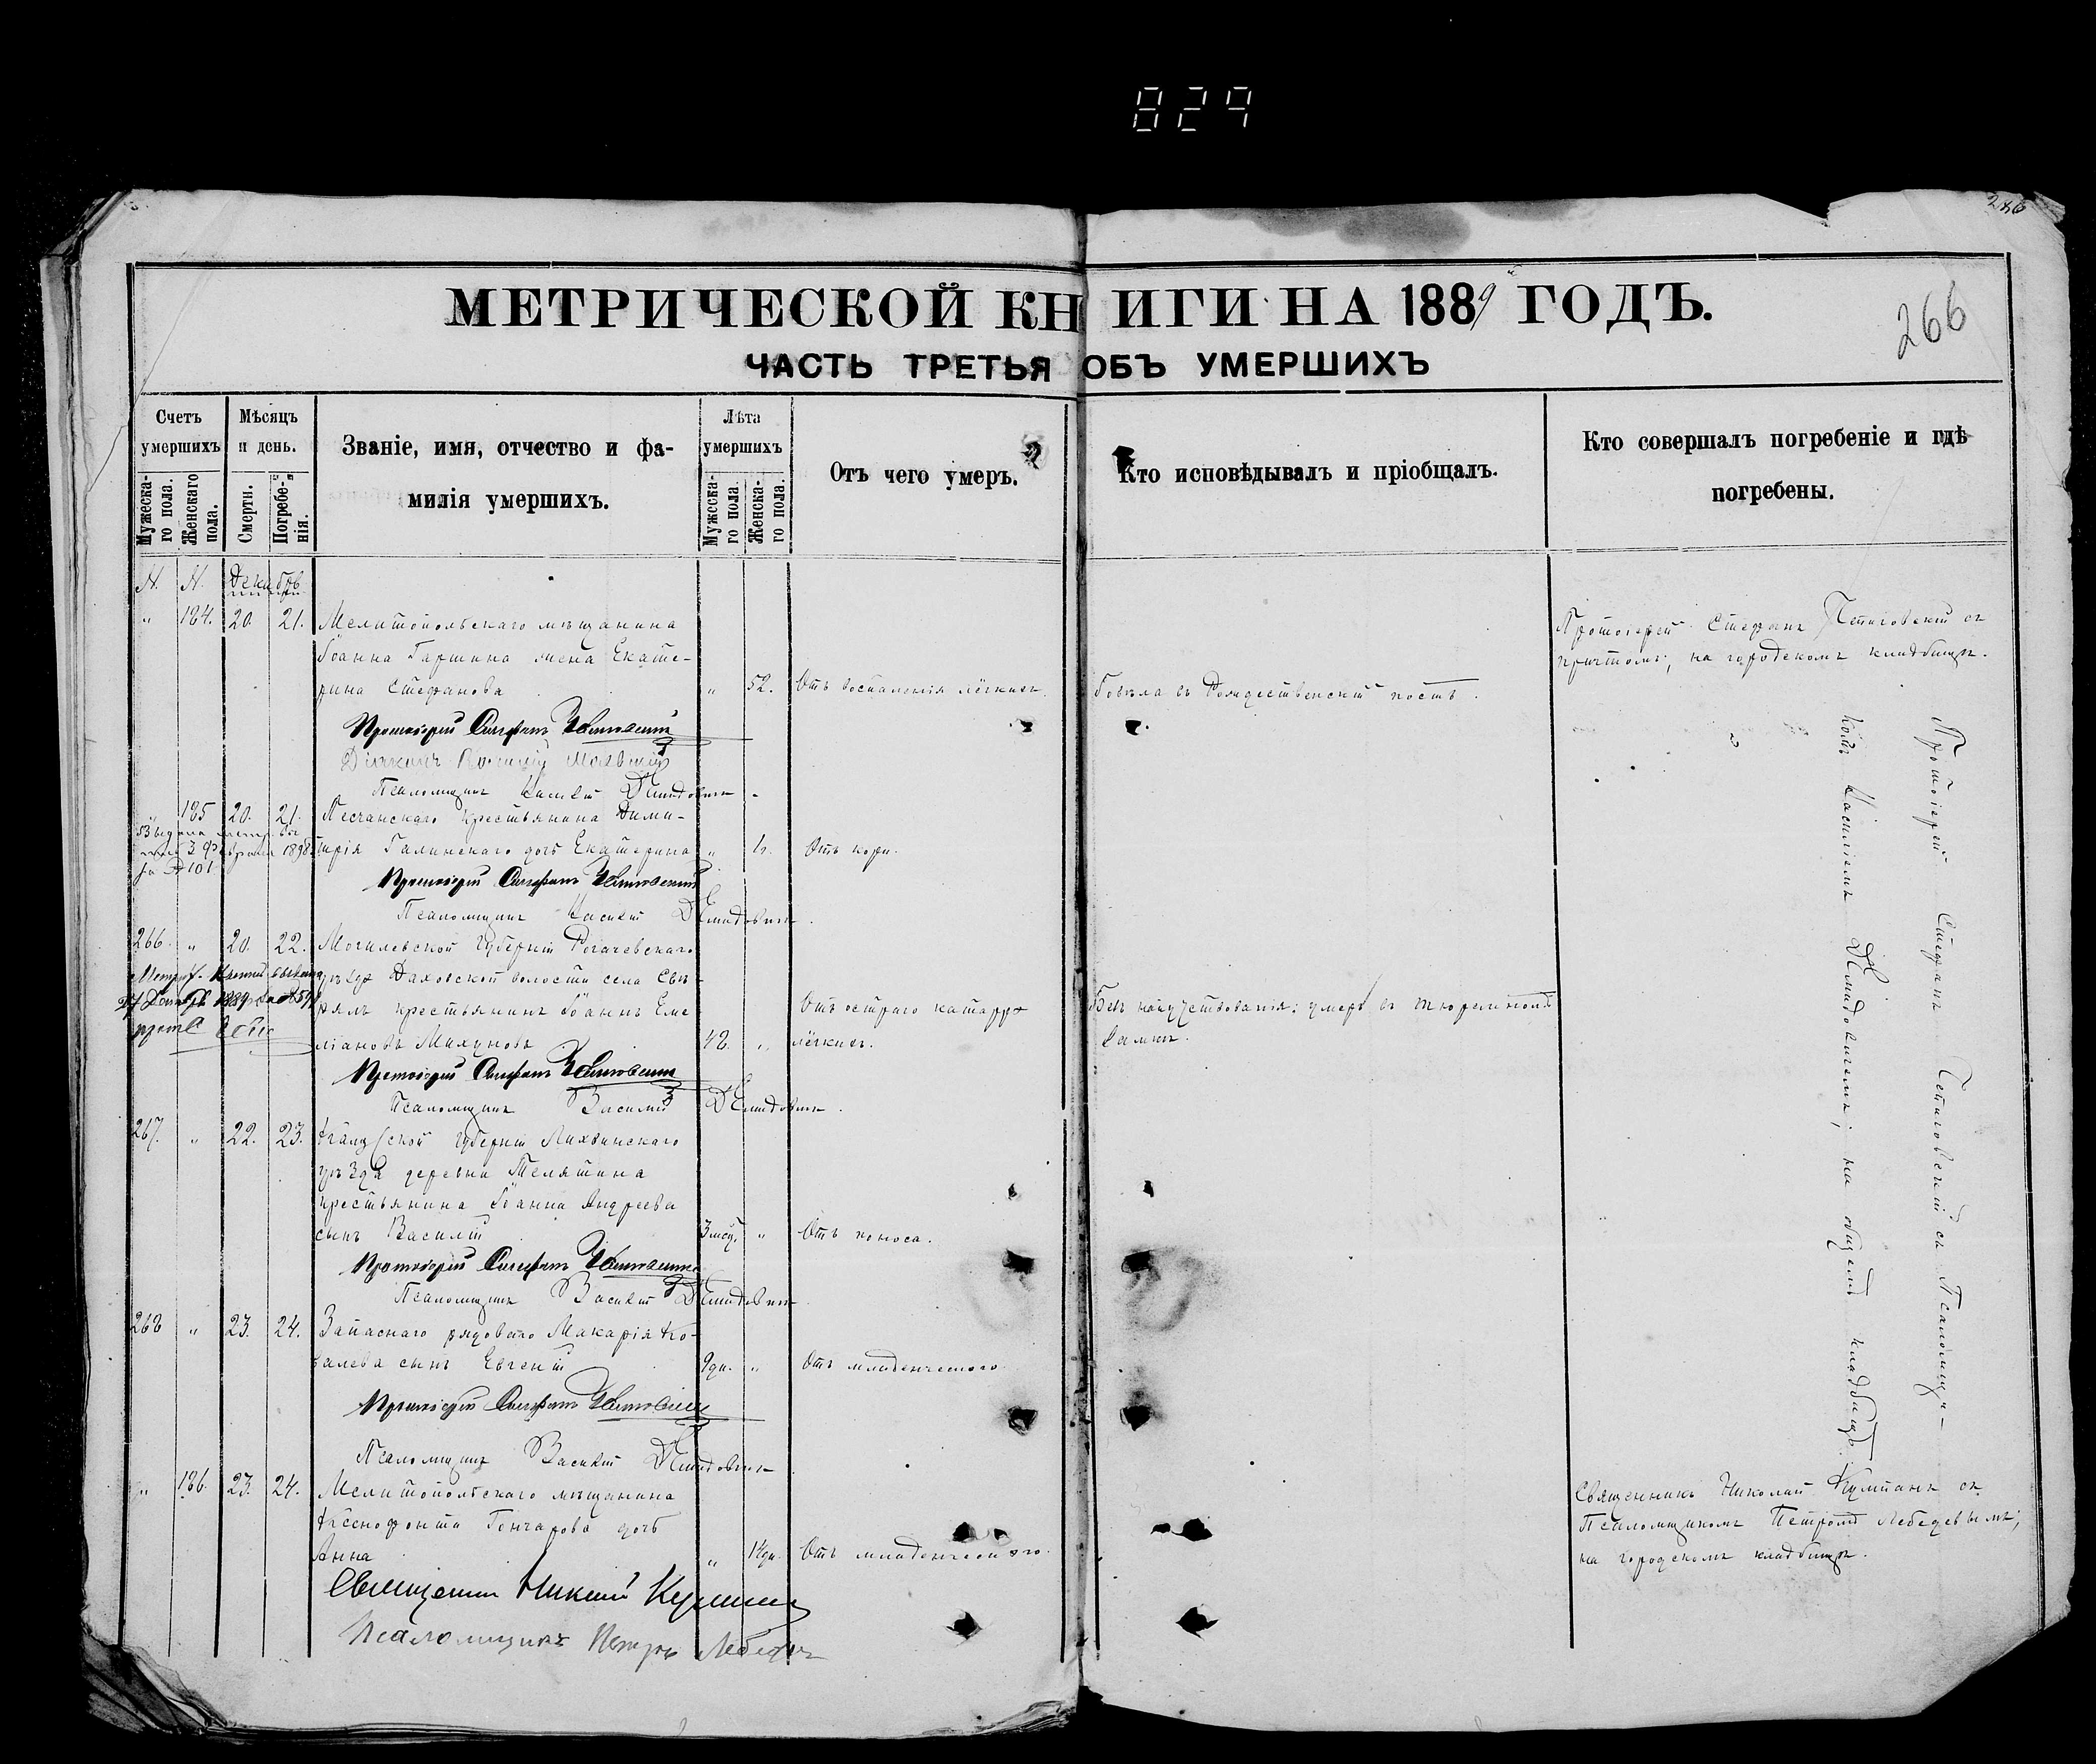 829
286
МЕТРИЧЕСКОЙ КНИГИ НА 1889 ГОДЪ.
266
ЧАСТЬ ТРЕТЬЯ ОБЪ УМЕРШИХЪ
Счетъ умершихъ
Мужескаго пола.
Женскаго пола.
Мѣсяцъ и день.
Смерти.
Погребенія.
Званіе, имя, отчество и фамилія умершихъ.
Лѣта умершихъ
Мужескаго пола.
Женскаго пола.
Отъ чего умеръ.
Кто исповѣдывалъ и пріобщалъ.
Кто совершалъ погребеніе и гдѣ погребены.
N. N. Декабрь
" 184. 20. 21. Мелитопольскаго мѣщанина
Іоанна Гаршина жена Екате-
рина Стефанова " 52. Отъ воспаленія лёгкихъ. Говѣла въ Рождественскій постъ.
Протоіерей Стефанъ
Псаломщикъ Василій Демидовичъ
Протоіерей Стефанъ съ
причтомъ, на городскомъ кладбищѣ.
" 185 20. 21. Песчанскаго крестьянина Дими-
трія Галинскаго дочь Екатерина " Отъ кори.
Протоіерей Стефанъ
Псаломщикъ Василій Демидовичъ
266 " 20. 22. Могилевской губерніи Рогачевскаго
уѣзда волости села
крестьянинъ Іоаннъ Еме-
ліановъ Махуновъ 42. " Отъ остраго катарра
лёгкихъ.
Безъ напутствованія: умеръ въ тюремномъ
замкѣ.
Протоіерей Стефанъ
Псаломщикъ Василій Демидовичъ
267. " 22. 23. Калужской губерніи Лихвинскаго
уѣзда деревни Мелятина
крестьянина Іоанна Андреева
сынъ Василій 3 мсц. " Отъ поноса.
Протоіерей Стефанъ
Псаломщикъ Василій Демидовичъ
268 " 23. 24. Запаснаго рядового Макарія Ко-
валева сынъ Евгеній 9 дн. " Отъ младенческаго
Протоіерей Стефанъ
Псаломщикъ Василій Демидовичъ
Протоіерей Стефанъ съ Псаломщи-
комъ Василіемъ Демидовичемъ, на общемъ кладбищѣ.
" 186. 23. 24. Мелитопольскаго мѣщанина
Ксенофонта Гончарова дочь
Анна " 14 дн. Отъ младенческаго.
Священникъ Николай
Псаломщикъ Петръ Лебедевъ
Священникъ Николай съ
Псаломщикомъ Петромъ Лебедевымъ,
на городскомъ кладбищѣ.